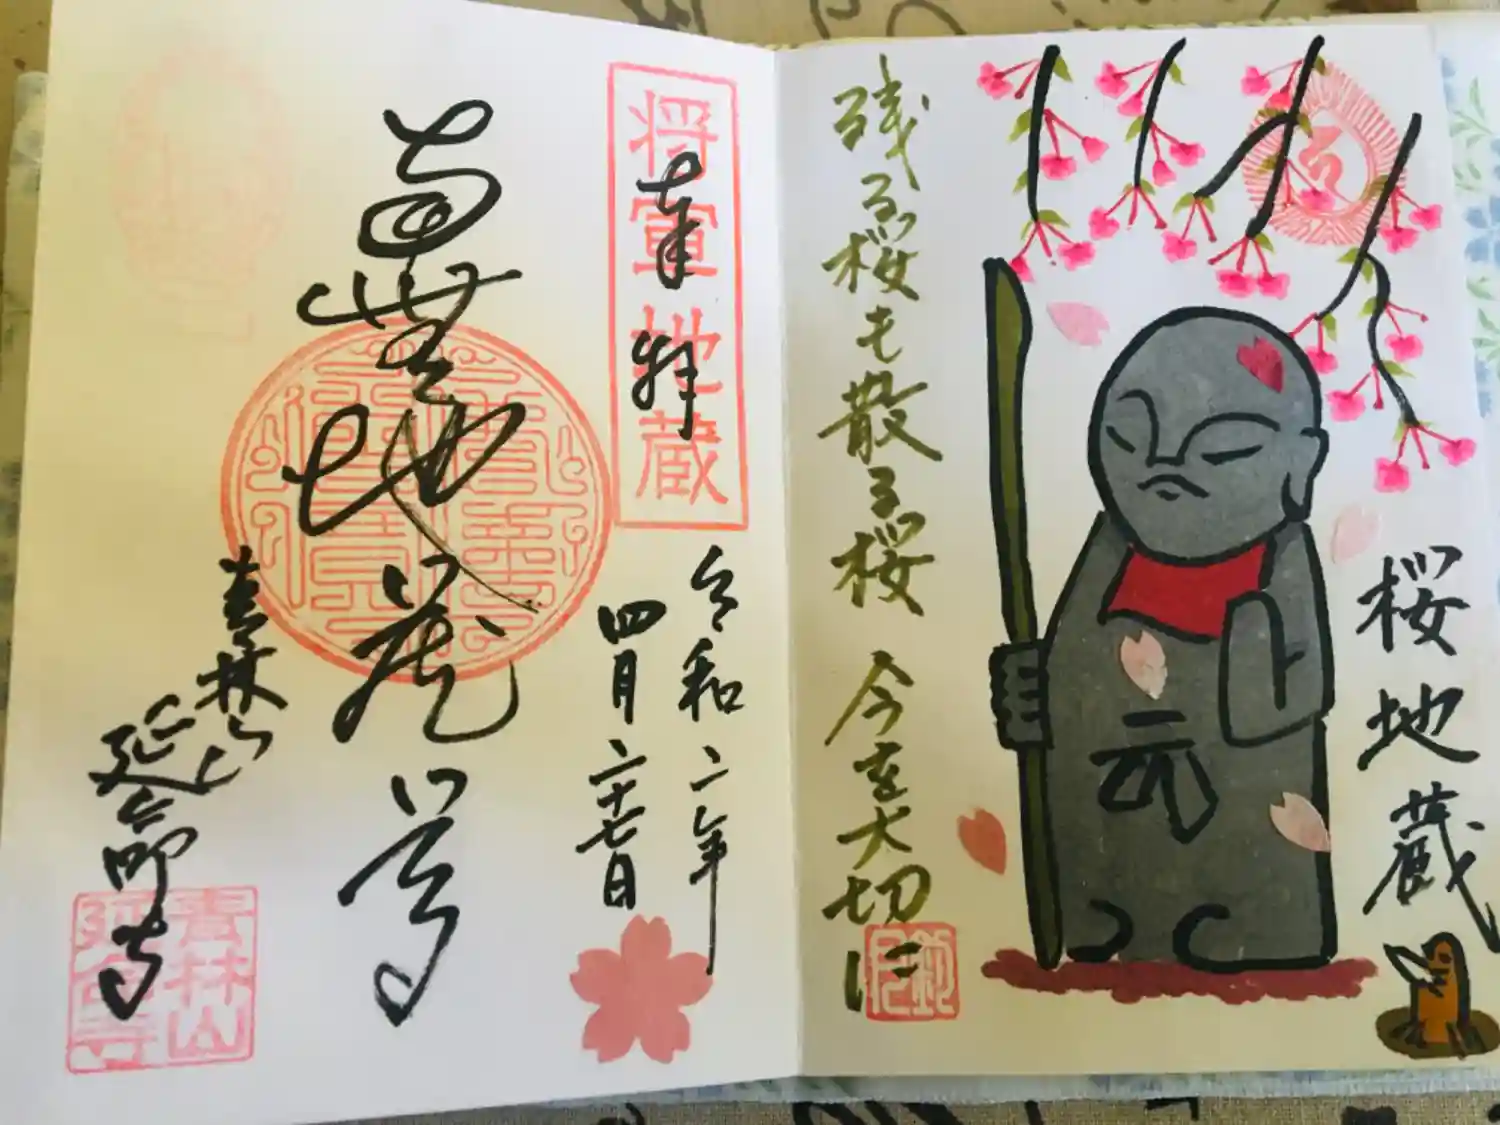 桜地蔵
残る桜も散る桜 今を大切に
将軍地蔵
奉拝
令和二年
四月二十七日
南無地蔵尊
青林山
延命寺
青林山
延命寺